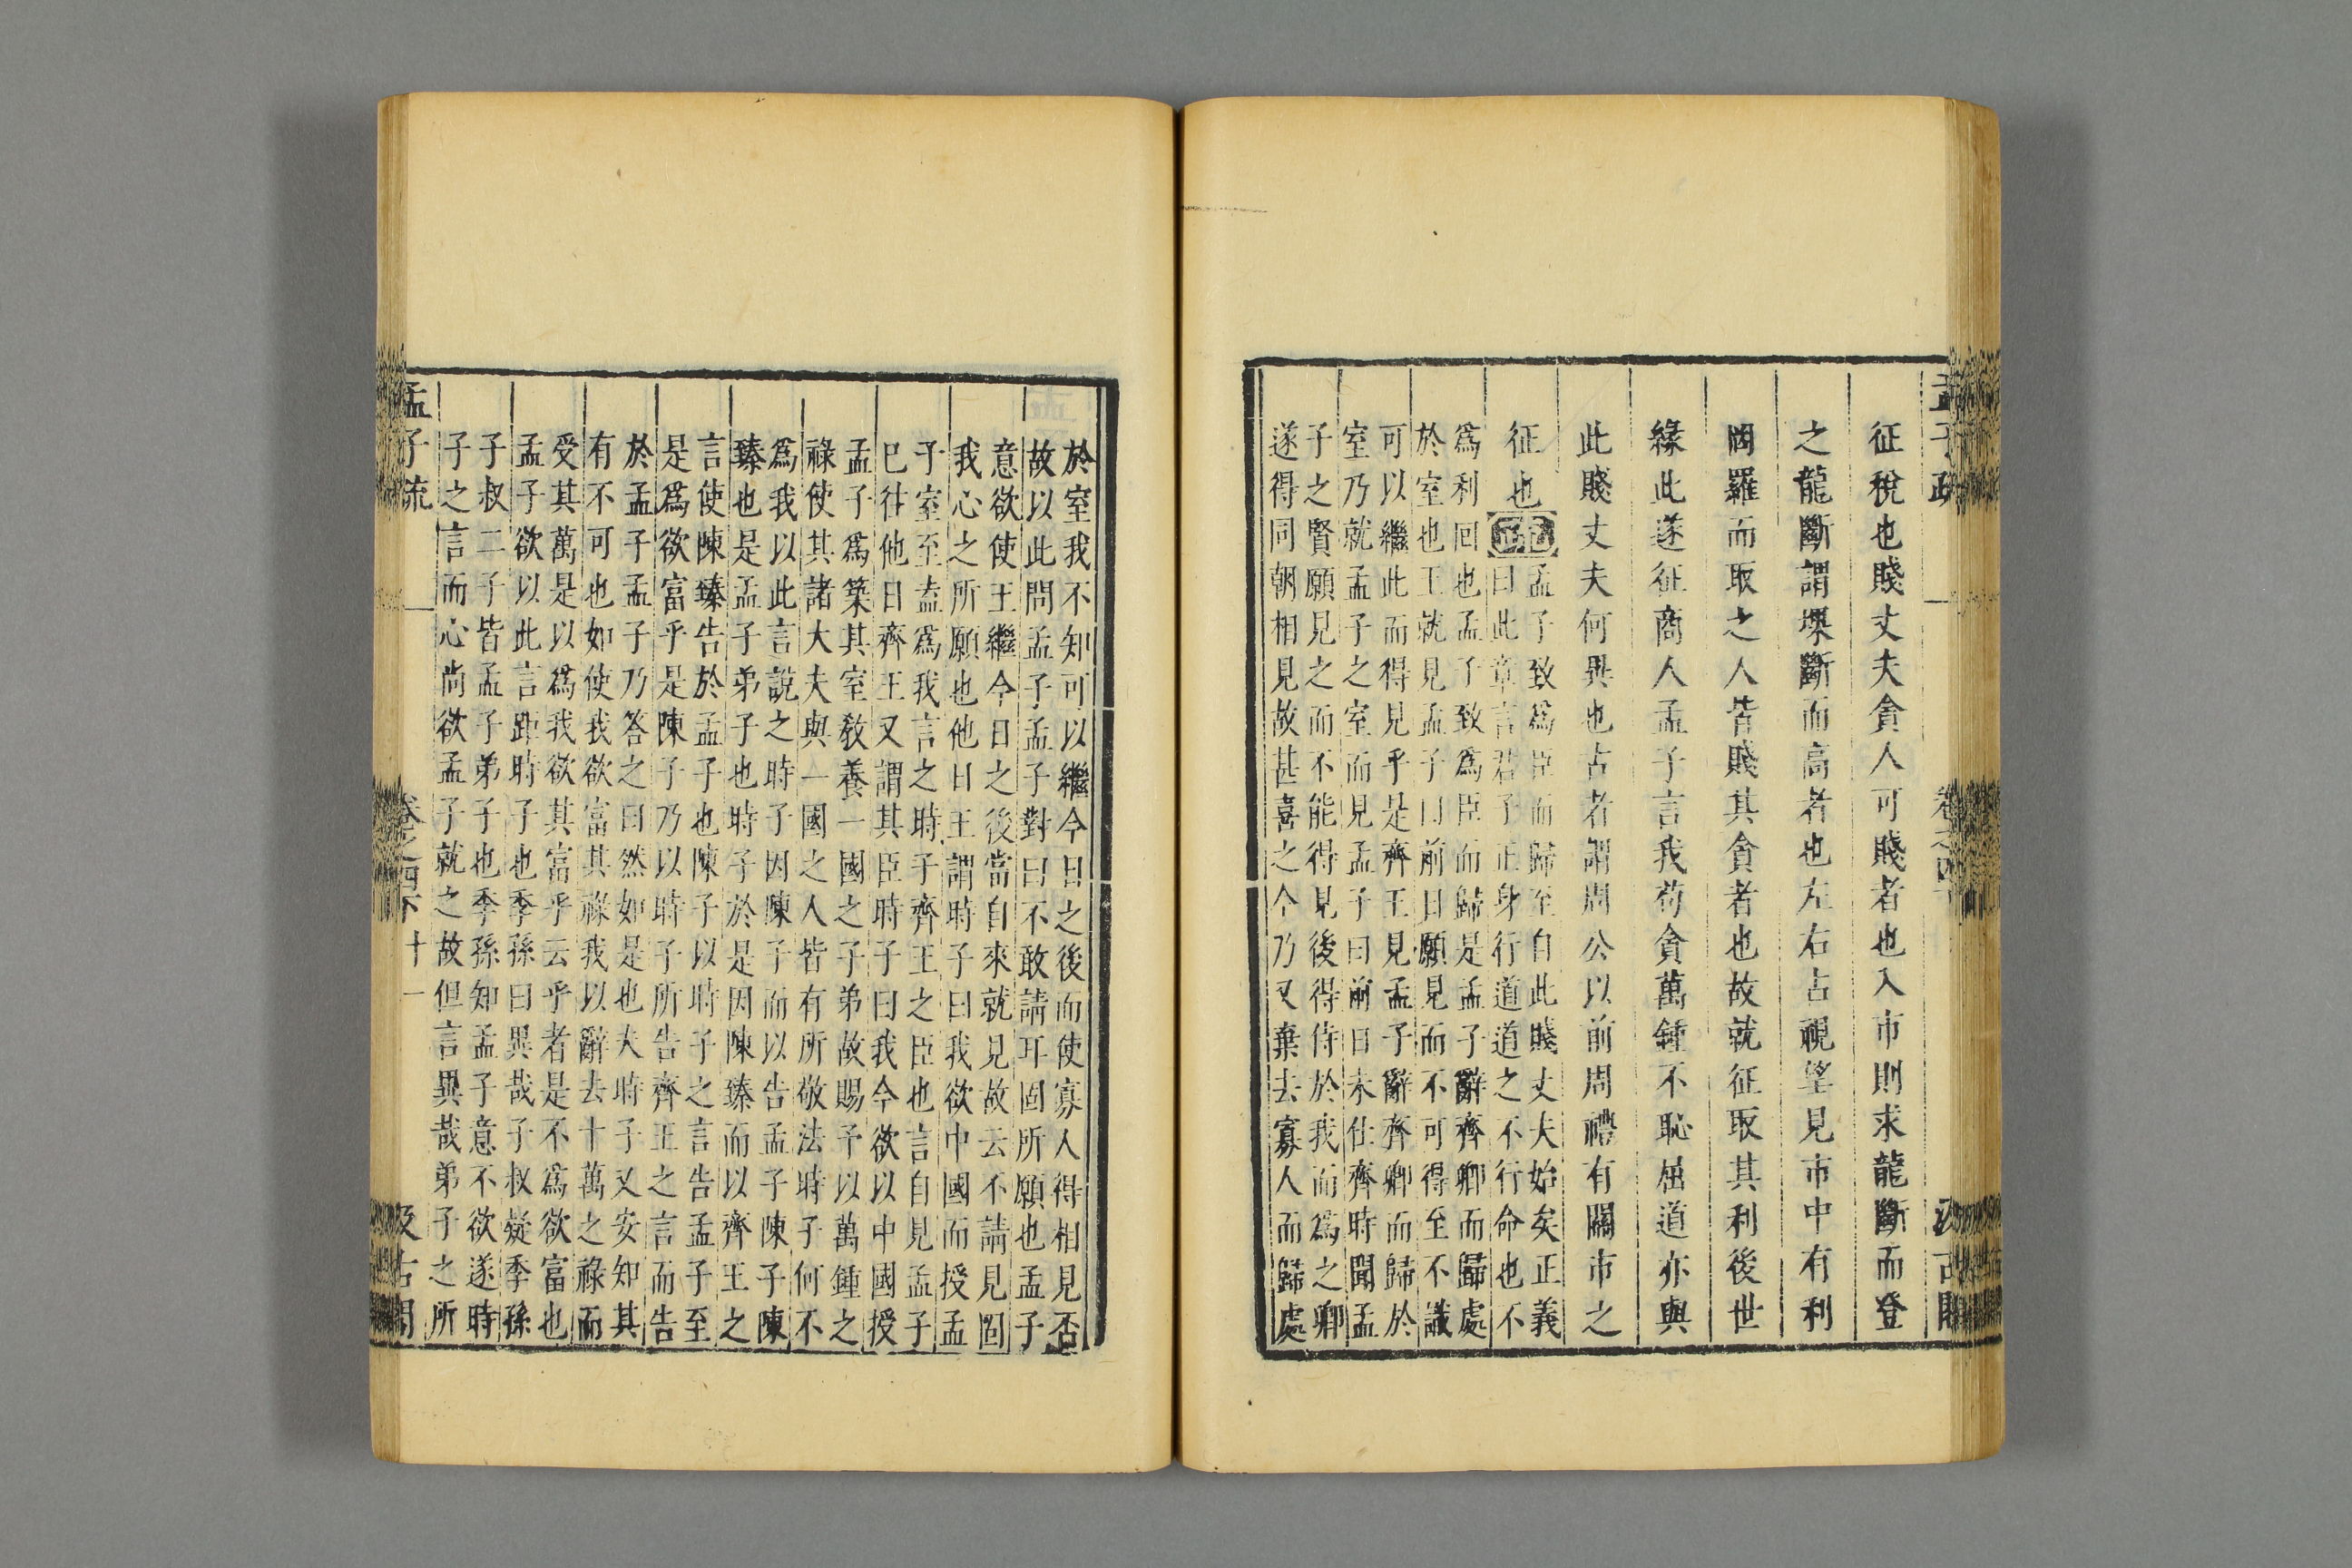 孟子疏 卷之四下 汲古閣
征稅也賤丈夫貪人可賤者也入市則求龍斷而登
之龍斷謂堁斷而高者也左右占視望見市中有利
罔羅而取之人皆賤其貪者也故就征取其利後世
緣此遂征商人孟子言我苟貪萬鍾不恥屈道亦與
此賤丈夫何異也古者謂周公以前周禮有關市之
征也疏孟子致爲臣而歸至自此賤丈夫始矣正義
曰此章言君子正身行道道之不行命也不
爲利回也孟子致爲臣而歸是孟子辭齊卿而歸處
於室也王就見孟子曰前日願見而不可得至不識
可以繼此而得見乎是齊王見孟子辭齊卿而歸於
室乃就孟子之室而見孟子曰前日未仕齊時聞孟
子之賢願見之而不能得見後得侍於我而爲之卿
遂得同朝相見故甚喜之今乃又棄去寡人而歸處
於室我不知可以繼今日之後而使寡人得相見否
故以此問孟子孟子對曰不敢請耳固所願也孟子
意欲使王繼今日之後當自來就見故云不請見固
我心之所願也他日王謂時子曰我欲中國而授孟
子室至盍爲我言之時子齊王之臣也言自見孟子
已往他日齊王又謂其臣時子曰我今欲以中國授
孟子爲築其室敎養一國之子弟故賜予以萬鍾之
祿使其諸大夫與一國之人皆有所敬法時子何不
爲我以此言說之時子因陳子而以告孟子陳子陳
臻也是孟子弟子也時子於是因陳臻而以齊王之
言使陳臻告於孟子也陳子以時子之言告孟子至
是爲欲富乎是陳子乃以時子所告齊王之言而告
於孟子孟子乃答之曰然如是也夫時子又安知其
有不可也如使我欲富其祿我以辭去十萬之祿而
受其萬是以爲我欲其富乎云乎者是不爲欲富也
孟子欲以此言距時子也季孫曰異哉子叔疑季孫
子叔二子皆孟子弟子也季孫知孟子意不欲遂時
子之言而心尚欲孟子就之故但言異哉弟子之所
孟子疏 卷之四下 十一 汲古閣